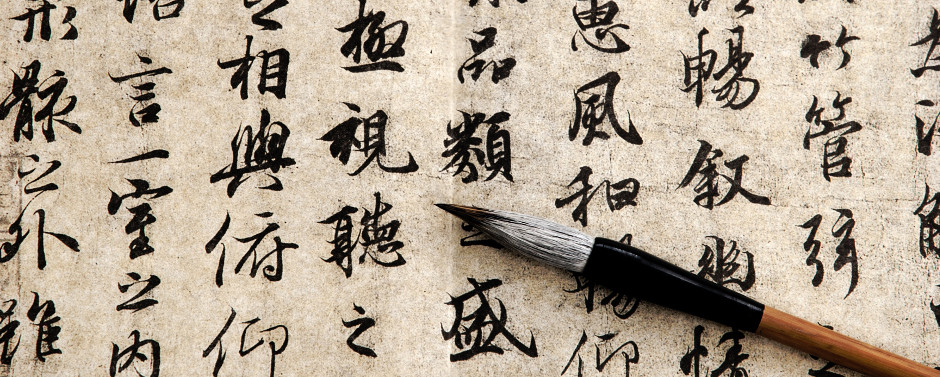 竹管弦
暢叙幽情
惠風和暢仰
品類之盛
極視聽之
之相與俯仰
言一室之內
形骸之外雖